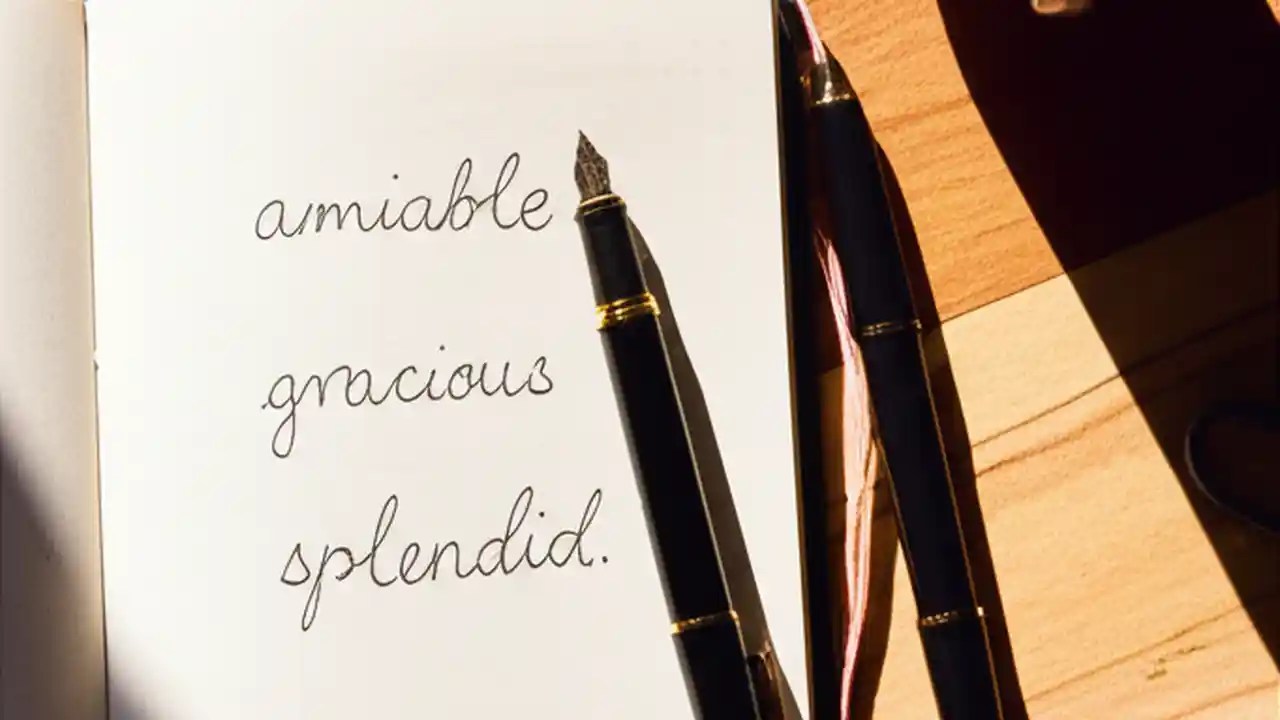 amiable
gracious
splendid.